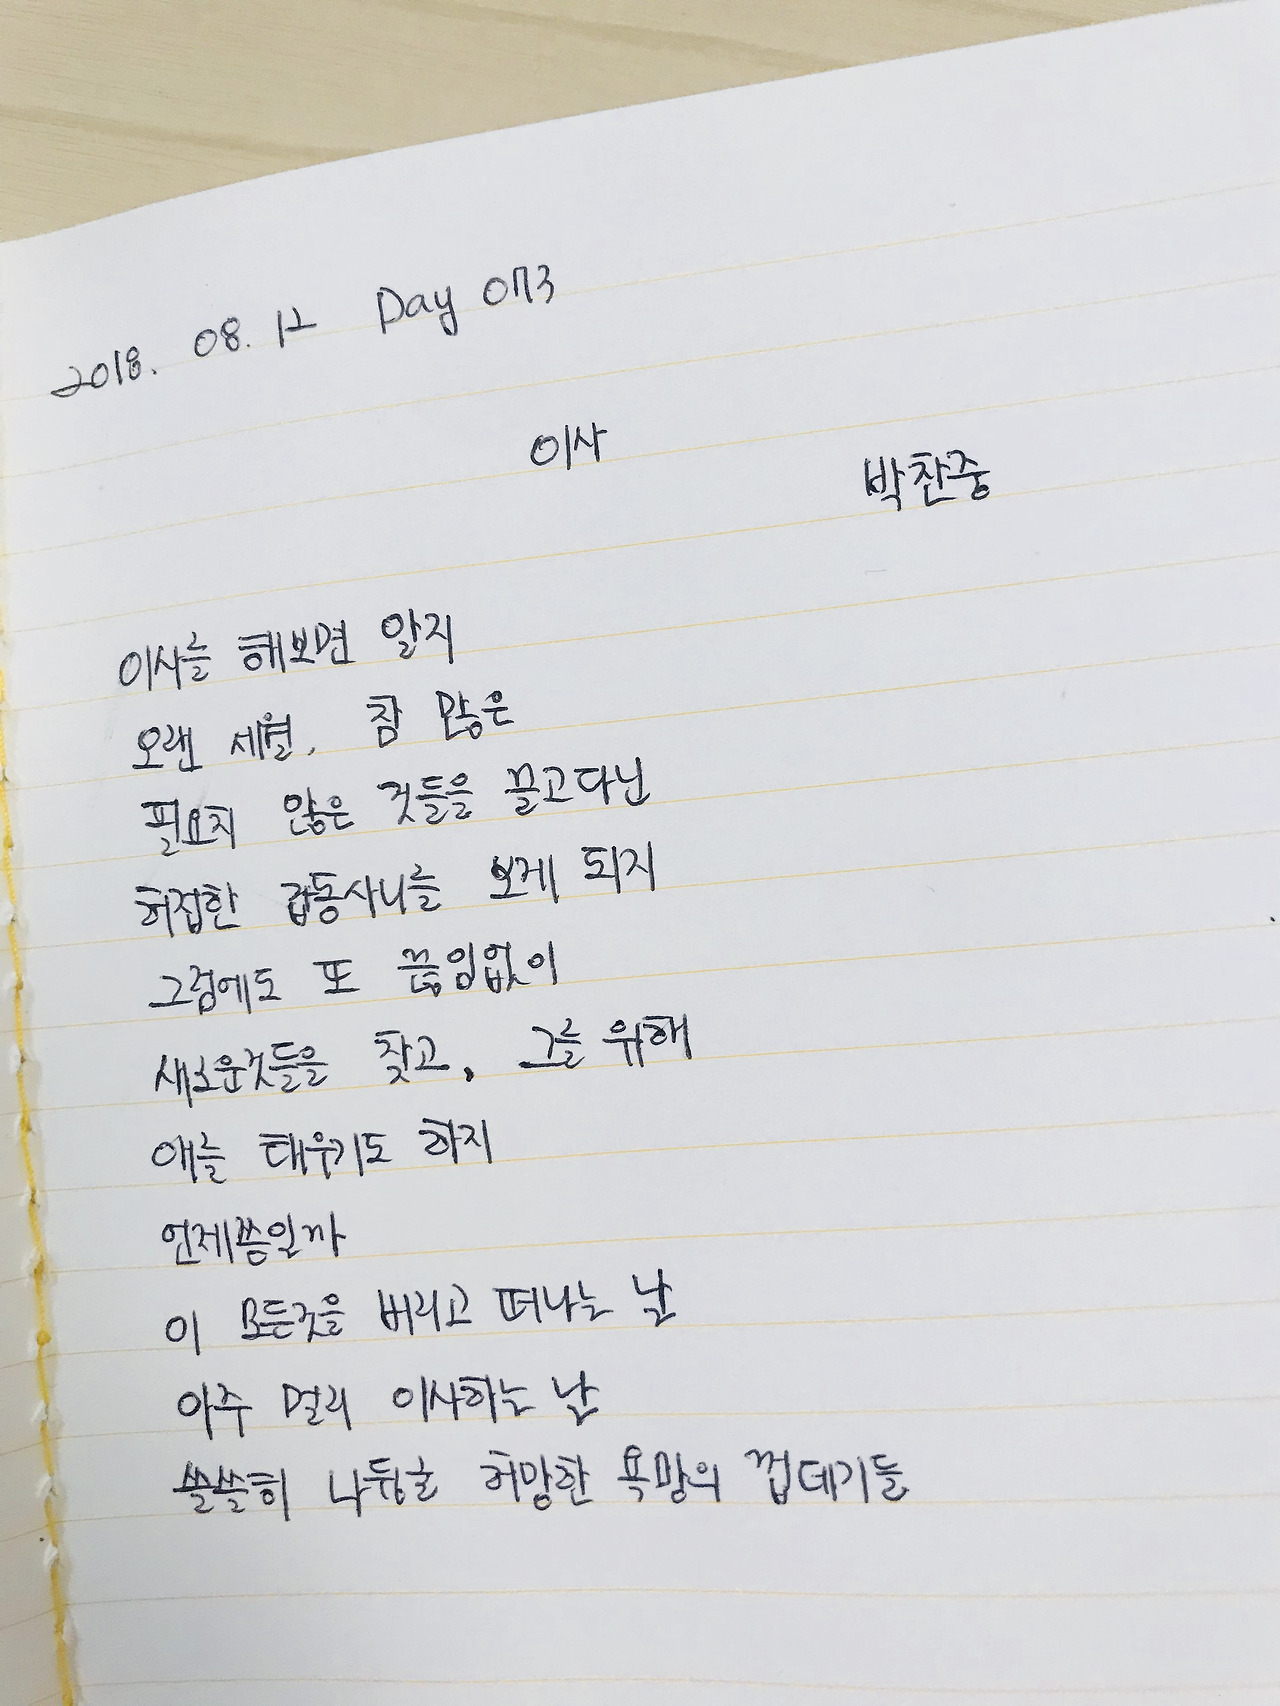 2018. 08. 12 Day 073
이사
박찬중
이사를 해보면 알지
오랜 세월, 참 많은
필요치 않은 것들을 끌고다닌
허접한 랍동사니를 보게 되지
그럼에도 또 끊임없이
새로운것들을 찾고, 그를 위해
애를 태우기도 하지
언제쯤일까
이 모든것을 버리고 떠나는 날
아주 멀리 이사하는 날
쓸쓸히 나뒹굴 허망한 욕망의 껍데기들